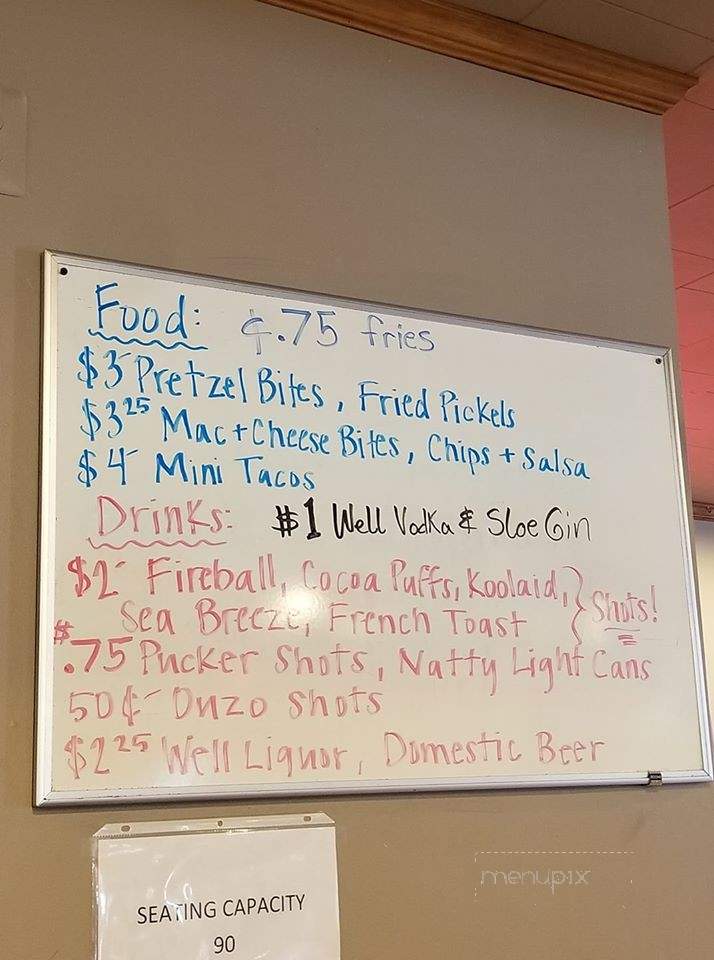 Food: ¢.75 fries
$3 Pretzel Bites, Fried Pickels
$3²⁵ Mac + Cheese Bites, Chips + Salsa
$4 Mini Tacos
Drinks: $1 Well Vodka & Sloe Gin
$2 Fireball, Cocoa Puffs, Koolaid, } Shots!
Sea Breeze, French Toast
$.75 Pucker Shots, Natty Light Cans
50¢ Ouzo Shots
$2²⁵ Well Liquor, Domestic Beer
SEATING CAPACITY
90
menupix